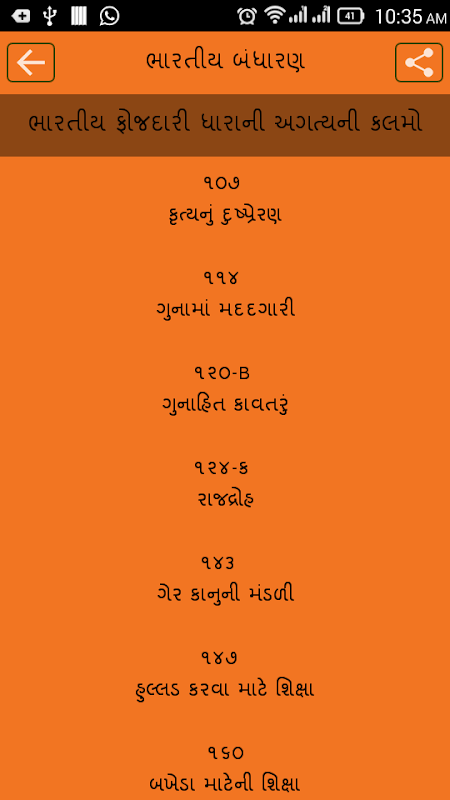 41 10:35 AM
ભારતીય બંધારણ
ભારતીય ફોજદારી ધારાની અગત્યની કલમો
૧૦૭
કૃત્યનું દુષ્પ્રેરણ
૧૧૪
ગુનામાં મદદગારી
૧૨૦-B
ગુનાહિત કાવતરું
૧૨૪-ક
રાજદ્રોહ
૧૪૩
ગેર કાનુની મંડળી
૧૪૭
હુલ્લડ કરવા માટે શિક્ષા
૧૬૦
બખેડા માટેની શિક્ષા